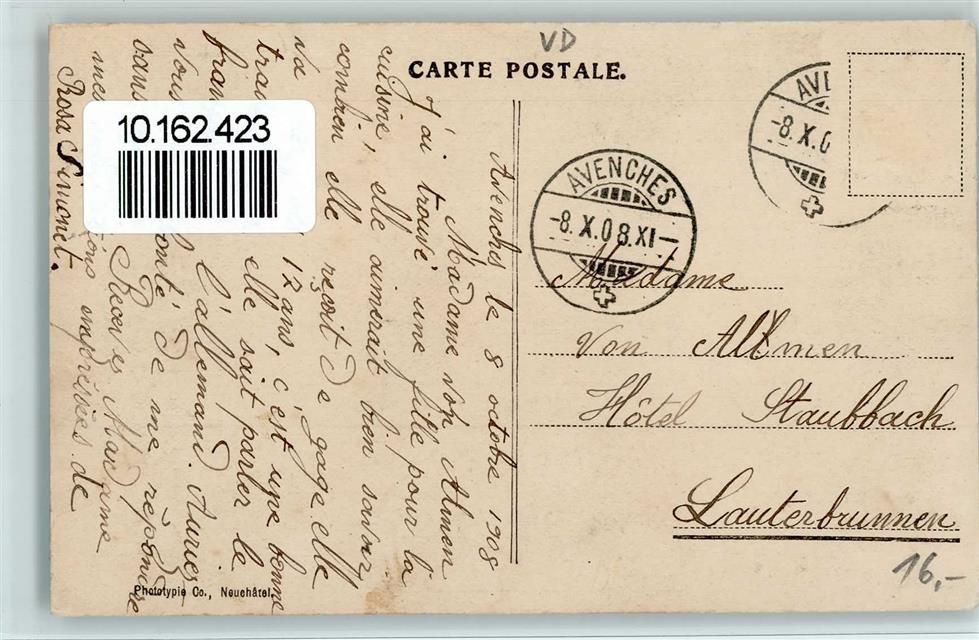 VD
CARTE POSTALE.
AVENCHES
-8.X.08.XI-
AVE
-8.X.0
Madame
Von Allmen
Hôtel Staubbach.
Lauterbrunnen
16,-
10.162.423
Avenches le 8 octobre 1908
Madame von Almen
j'ai trouvé une fille pour la
cuisine, elle aimerait bien savoir
combien elle reçoit de gage elle
va 17 ans, c'est une bonne
elle sait parler le
l'allemand. Auriez
vous de me répondre
sans Recevez Madame
mes empréssées de
Rosa Simonet.
Phototypie Co., Neuchâtel.